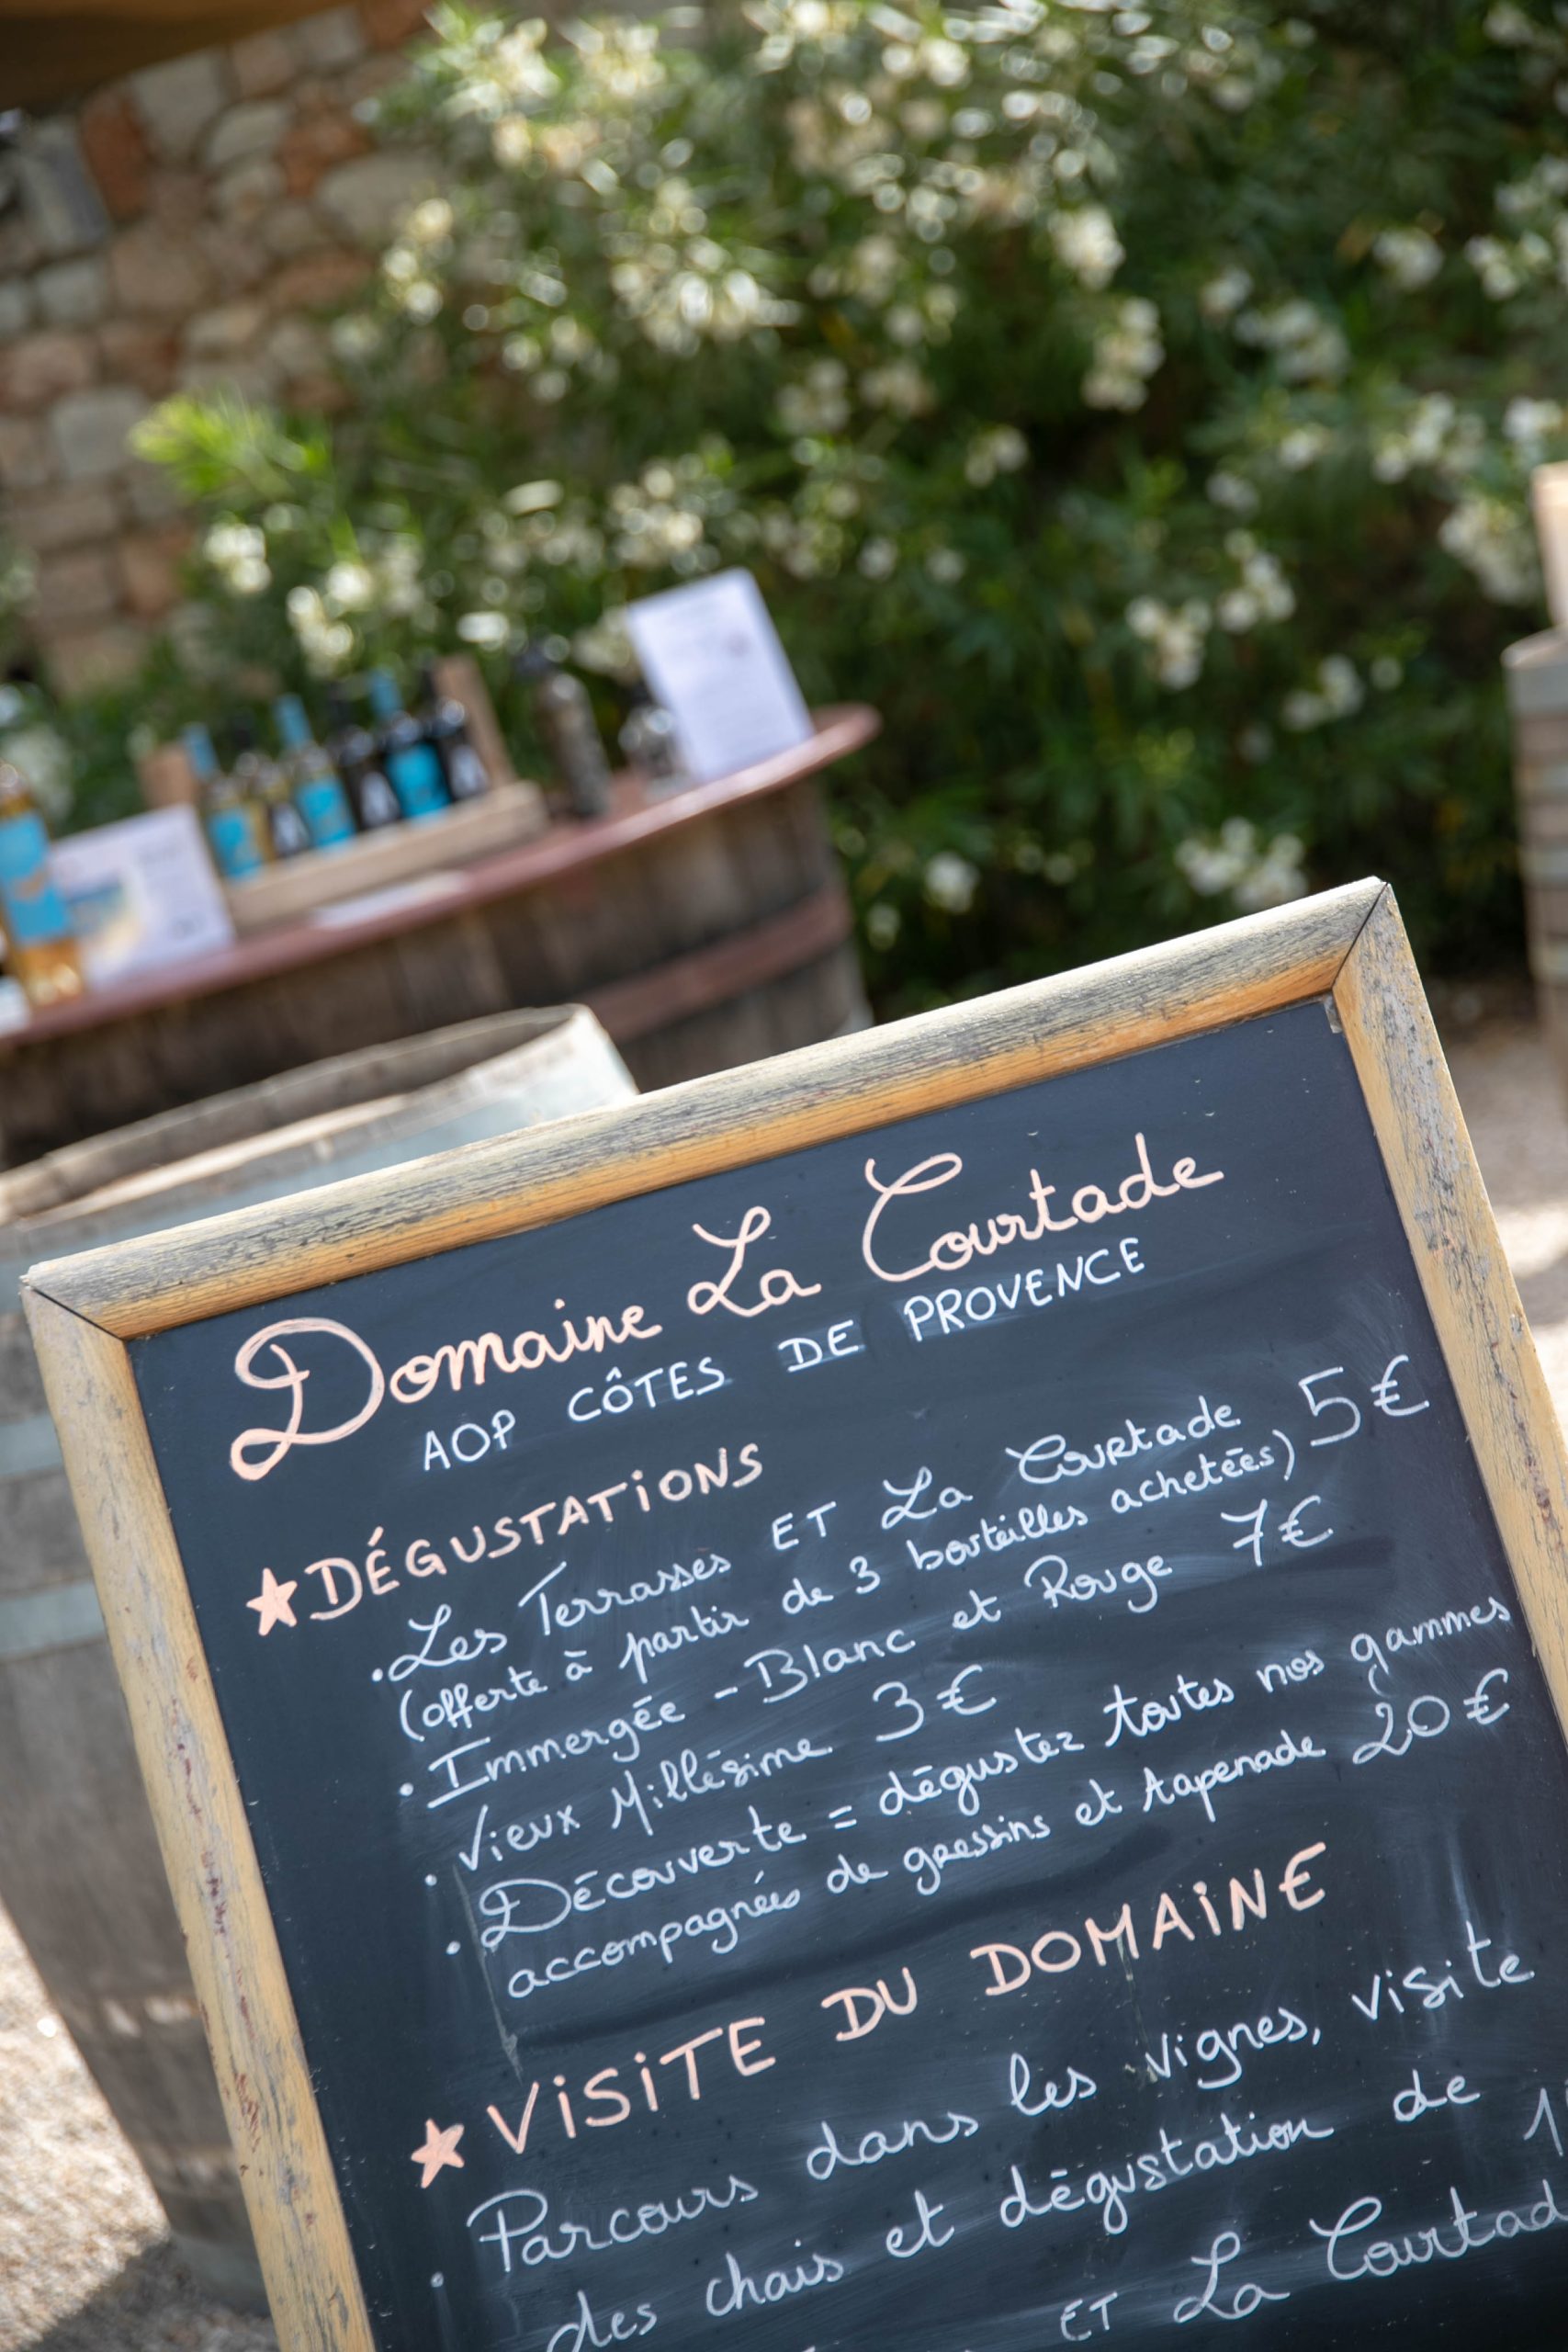 Domaine La Courtade
AOP CÔTES DE PROVENCE
★ DÉGUSTATIONS
• Les Terrasses ET La Courtade 5€
(offerte à partir de 3 bouteilles achetées)
• Immergée - Blanc et Rouge 7€
• Vieux Millésime 3€
• Découverte = dégustez toutes nos gammes
accompagnées de gressins et tapenade 20€
★ VISITE DU DOMAINE
• Parcours dans les vignes, visite
des chais et dégustation de
ET La Courtad